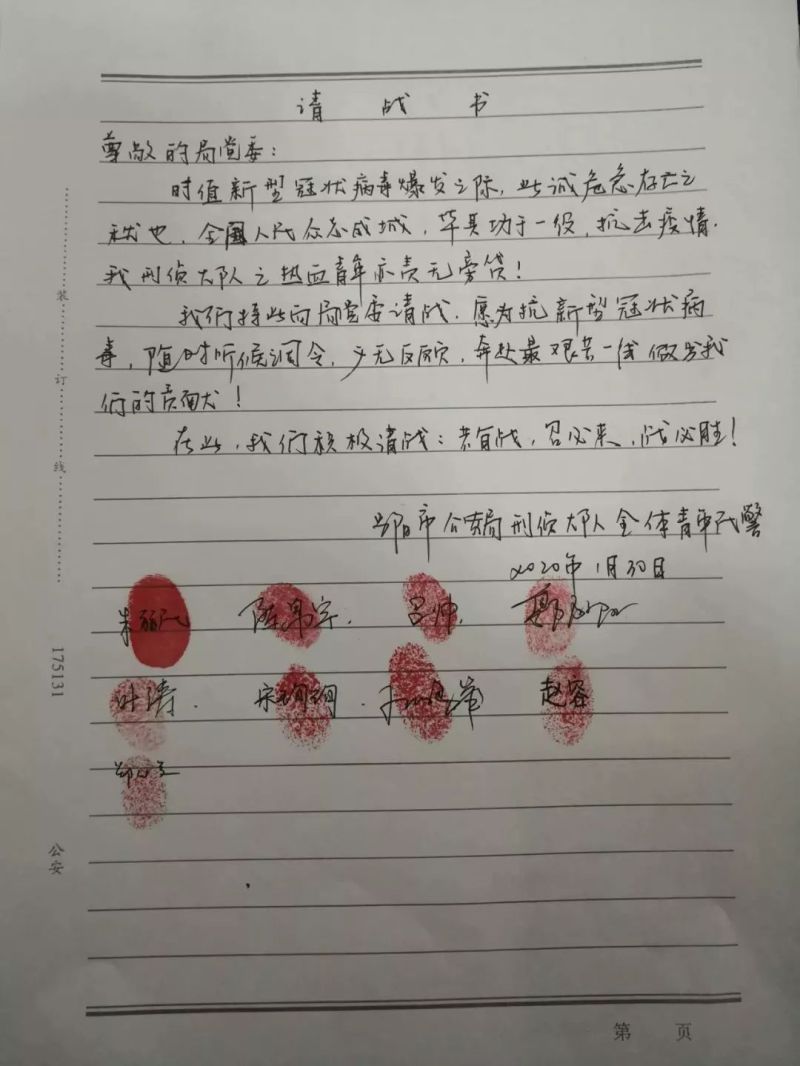 请战书
尊敬的局党委：
时值新型冠状病毒爆发之际，此诚危急存亡之
秋也，全国人民众志成城，毕其功于一役，抗击疫情.
我刑侦大队之热血青年亦责无旁贷！
我们特此向局党委请战，愿为抗新型冠状病
毒，随时听候调令，义无反顾，奔赴最艰苦一线做出我
们的贡献！
在此，我们积极请战：若有战，召必来，战必胜！
公安局刑侦大队全体青年民警
2020年1月30日
吕帅.
叶涛. 宋珣珣. 赵容
装
订
线
175131
公安
第 页